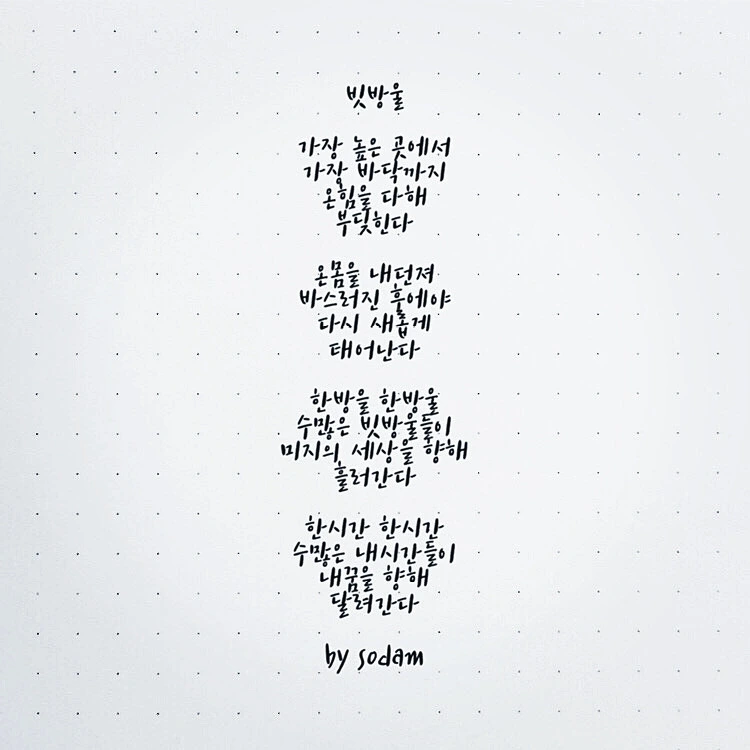 빗방울
가장 높은 곳에서
가장 바닥까지
온힘을 다해
부딪힌다
온몸을 내던져
바스러진 후에야
다시 새롭게
태어난다
한방울 한방울
수많은 빗방울들이
미지의 세상을 향해
흘러간다
한시간 한시간
수많은 내시간들이
내꿈을 향해
달려간다
by sodam